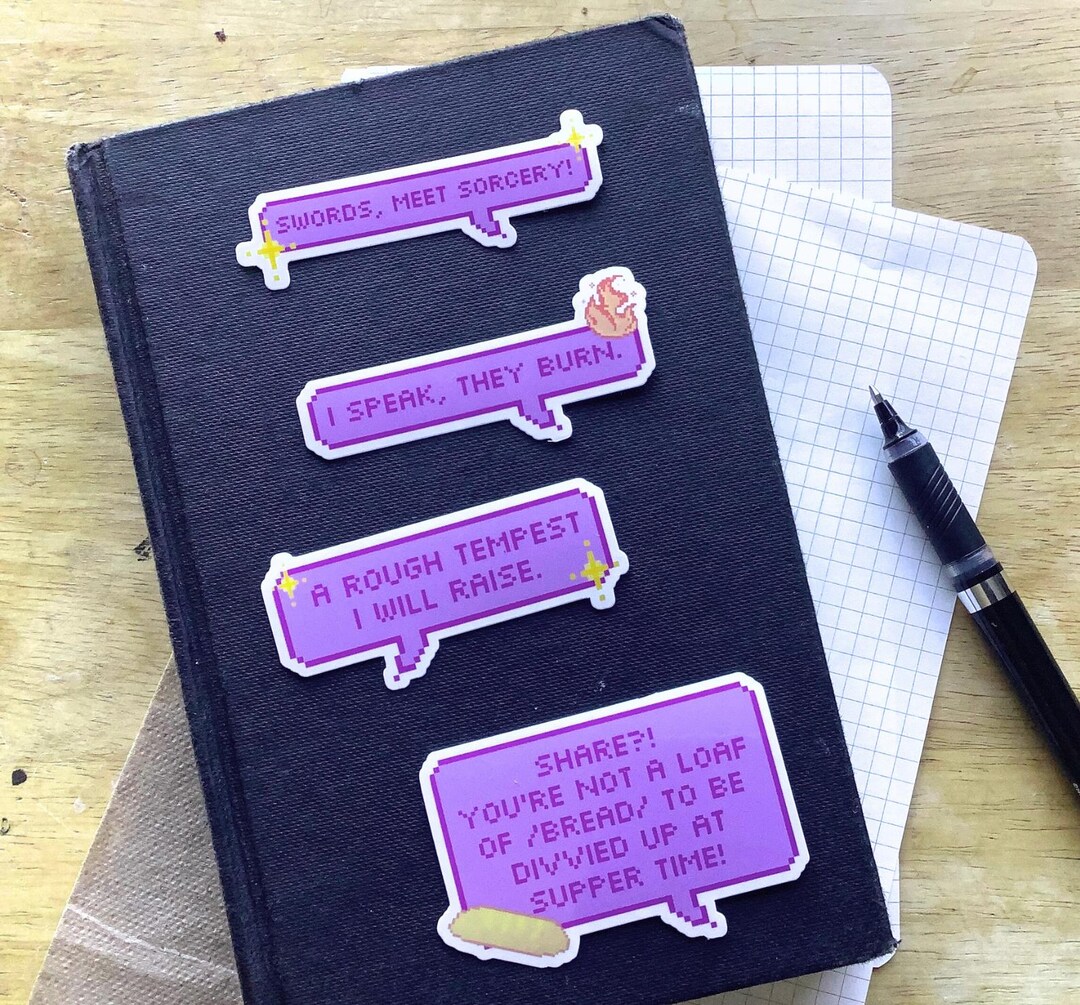 SWORDS, MEET SORCERY!
I SPEAK, THEY BURN.
A ROUGH TEMPEST
I WILL RAISE.
SHARE?!
YOU'RE NOT A LOAF
OF /BREAD/ TO BE
DIVVIED UP AT
SUPPER TIME!